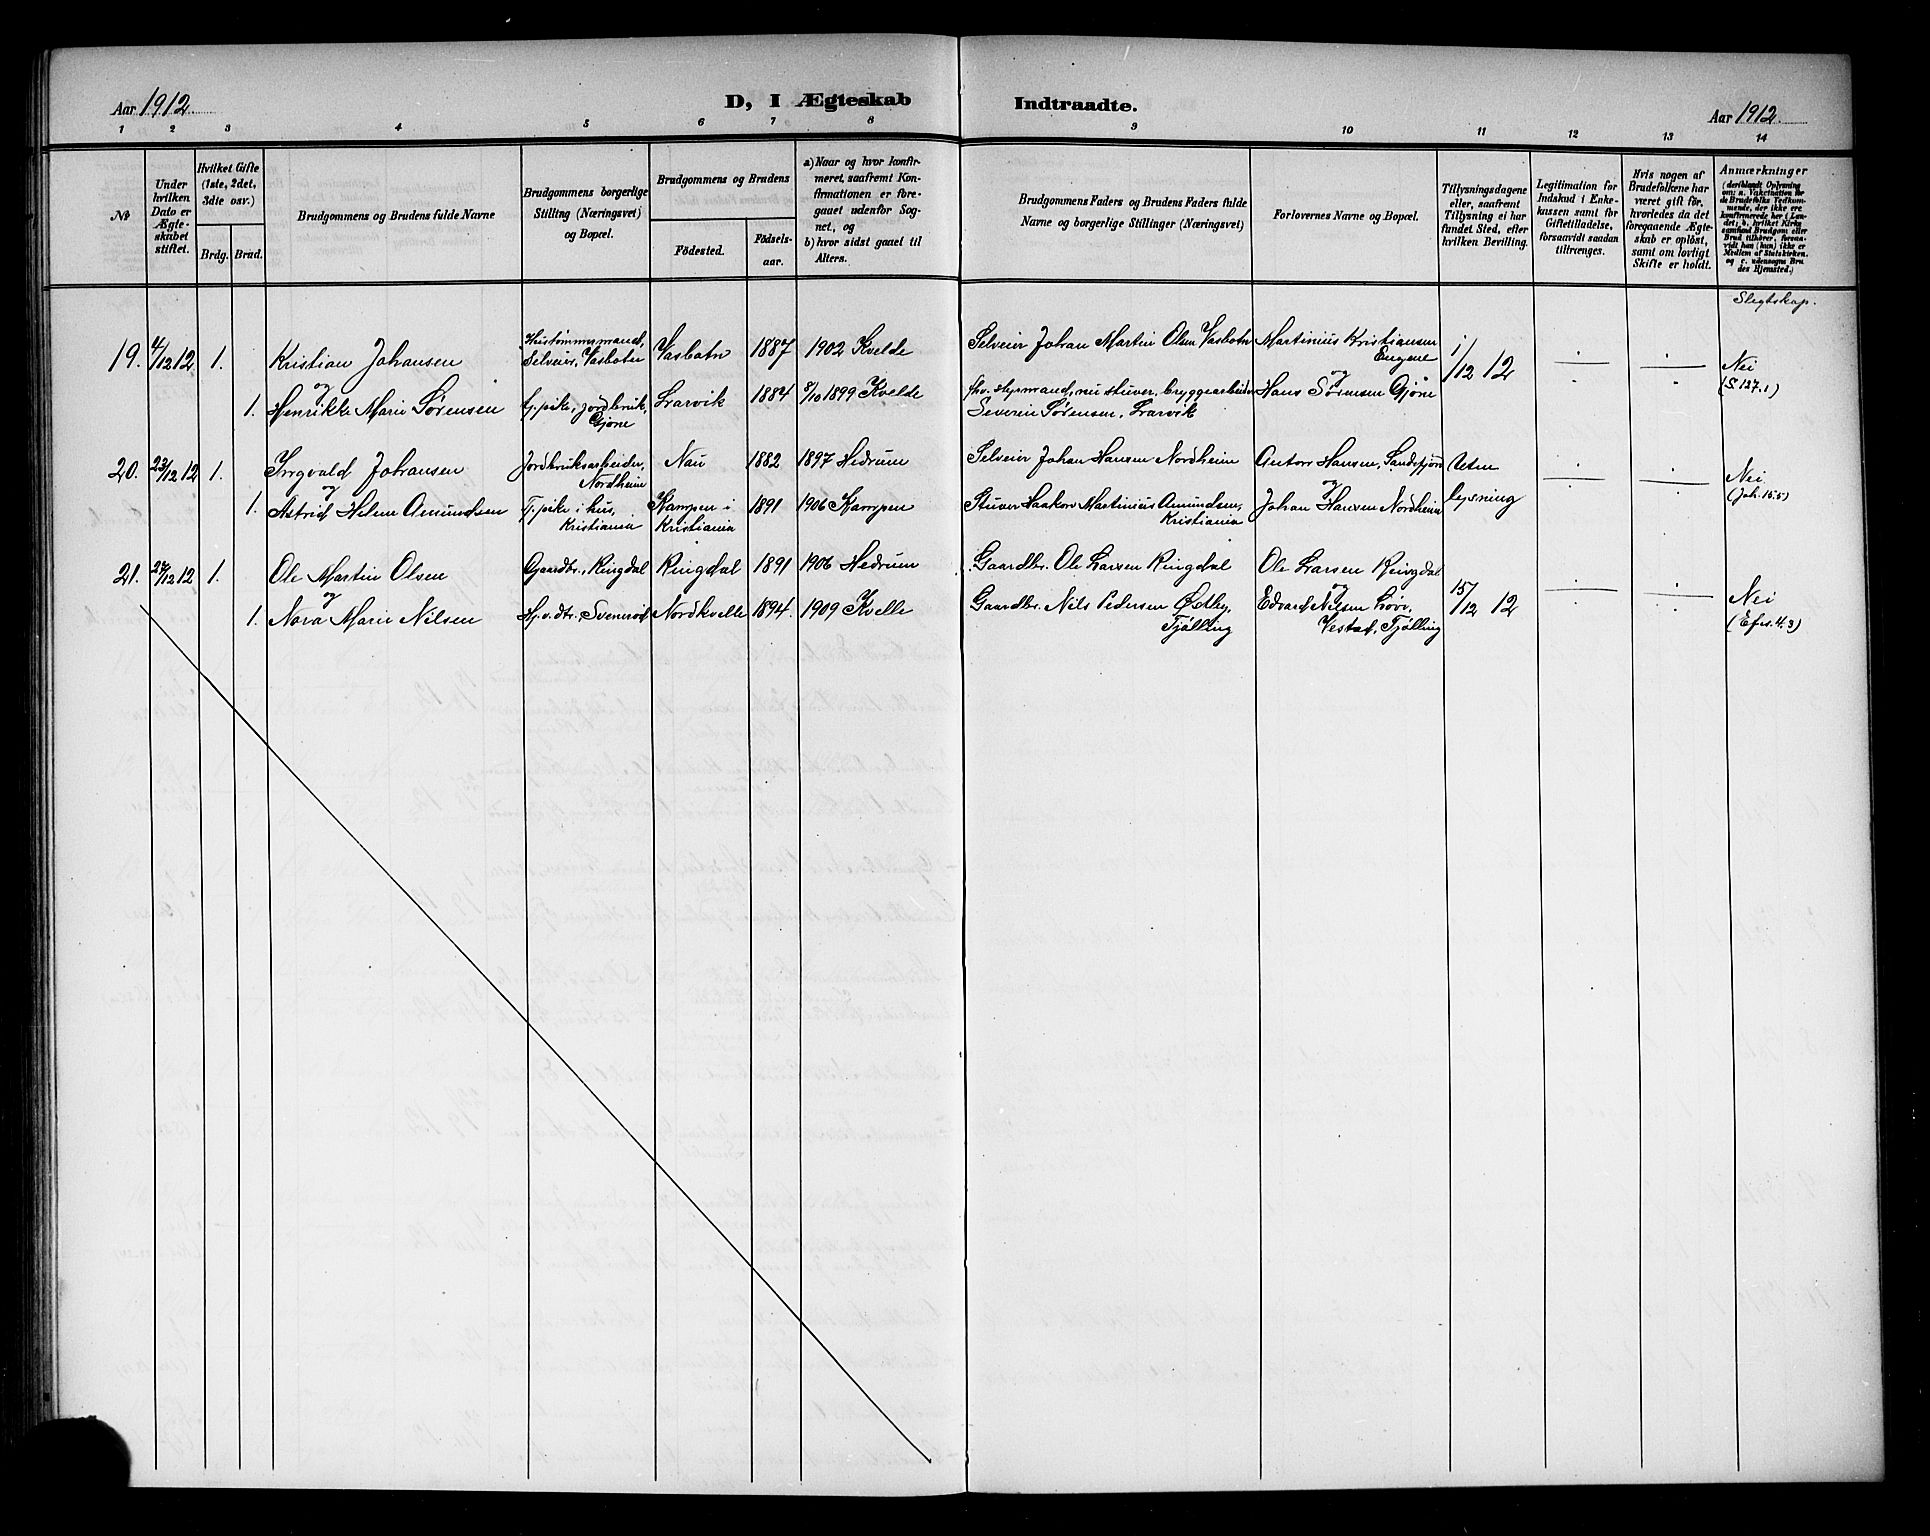 Aar 1912. D, I Ægteskab Indtraadte. Aar 1912.
1 2 3 4 5 6 7 8 9 10 11 12 13 14
№
Under hvilken Dato er Ægteskabet stiftet.
Hvilket Gifte (1ste, 2det, 3die osv.)
Brdg. Brud.
Brudgommens og Brudens fulde Navne
Brudgommens borgerlige Stilling (Næringsvei) og Bopæl.
Brudgommens og Brudens
Fødested.
Fødselsaar.
a) Naar og hvor konfirmeret, saafremt Konfirmationen er foregaaet udenfor Sognet, og
b) hvor sidst gaaet til Alters.
Brudgommens Faders og Brudens Faders fulde Navne og borgerlige Stillinger (Næringsvei)
Forlovernes Navne og Bopæl.
Tillysningsdagene eller, saafremt Tillysning ei har fundet Sted, efter hvilken Bevilling.
Legitimation for Indskud i Enkekassen samt for Giftetilladelse, forsaavidt saadan tiltrænges.
Hvis nogen af Brudefolkene har været gift før, hvorledes da det foregaaende Ægteskab er opløst, samt om lovligt Skifte er holdt.
Anmærkninger
Slegtskap.
19. 4/12 12 1. Kristian Johansen Selveier, Vasbotn Vasbotn 1887 1902 Kvelde Selveier Johan Martin Olsen Vasbotn Martinius Kristiansen 1/12 12 Nei
og
1. Henrikke Marie Sørensen t. pike, jordbruk, Gjone Larvik 1884 8/10 1899 Kvelde fhv. styrmand, nu stuver, bryggearbeider Severin Sørensen, Larvik og Hans Sørensen Gjone (S 127.1)
20. 23/12 12 1. Ingvald Johansen Jordbruksarbeider, Nordheim Nau 1882 1897 Hedrum Selveier Johan Hansen Nordheim Anton Hansen, Sandefjord Uten Nei
og
1. Astrid Helene Amundsen T. pike i hus, Kristiania Kampen i Kristiania 1891 1906 Kampen Stuver Haakon Martinius Amundsen, Kristiania og Johan Hansen Nordheim lysning (Joh. 15.5)
21. 27/12 12 1. Ole Martin Olsen Gaardbr., Ringdal Ringdal 1891 1906 Hedrum Gaardbr. Ole Larsen Ringdal Ole Larsen Ringdal 15/12 12 Nei
og
1. Nora Marie Nilsen Hj.v. dtr. Svennerød Nordkvelle 1894. 1909 Kvelle Gaardbr. Nils Pedersen Østby, Tjølling og Edvard Nilsen Løve, Vestad, Tjølling (Efes. 4.3)